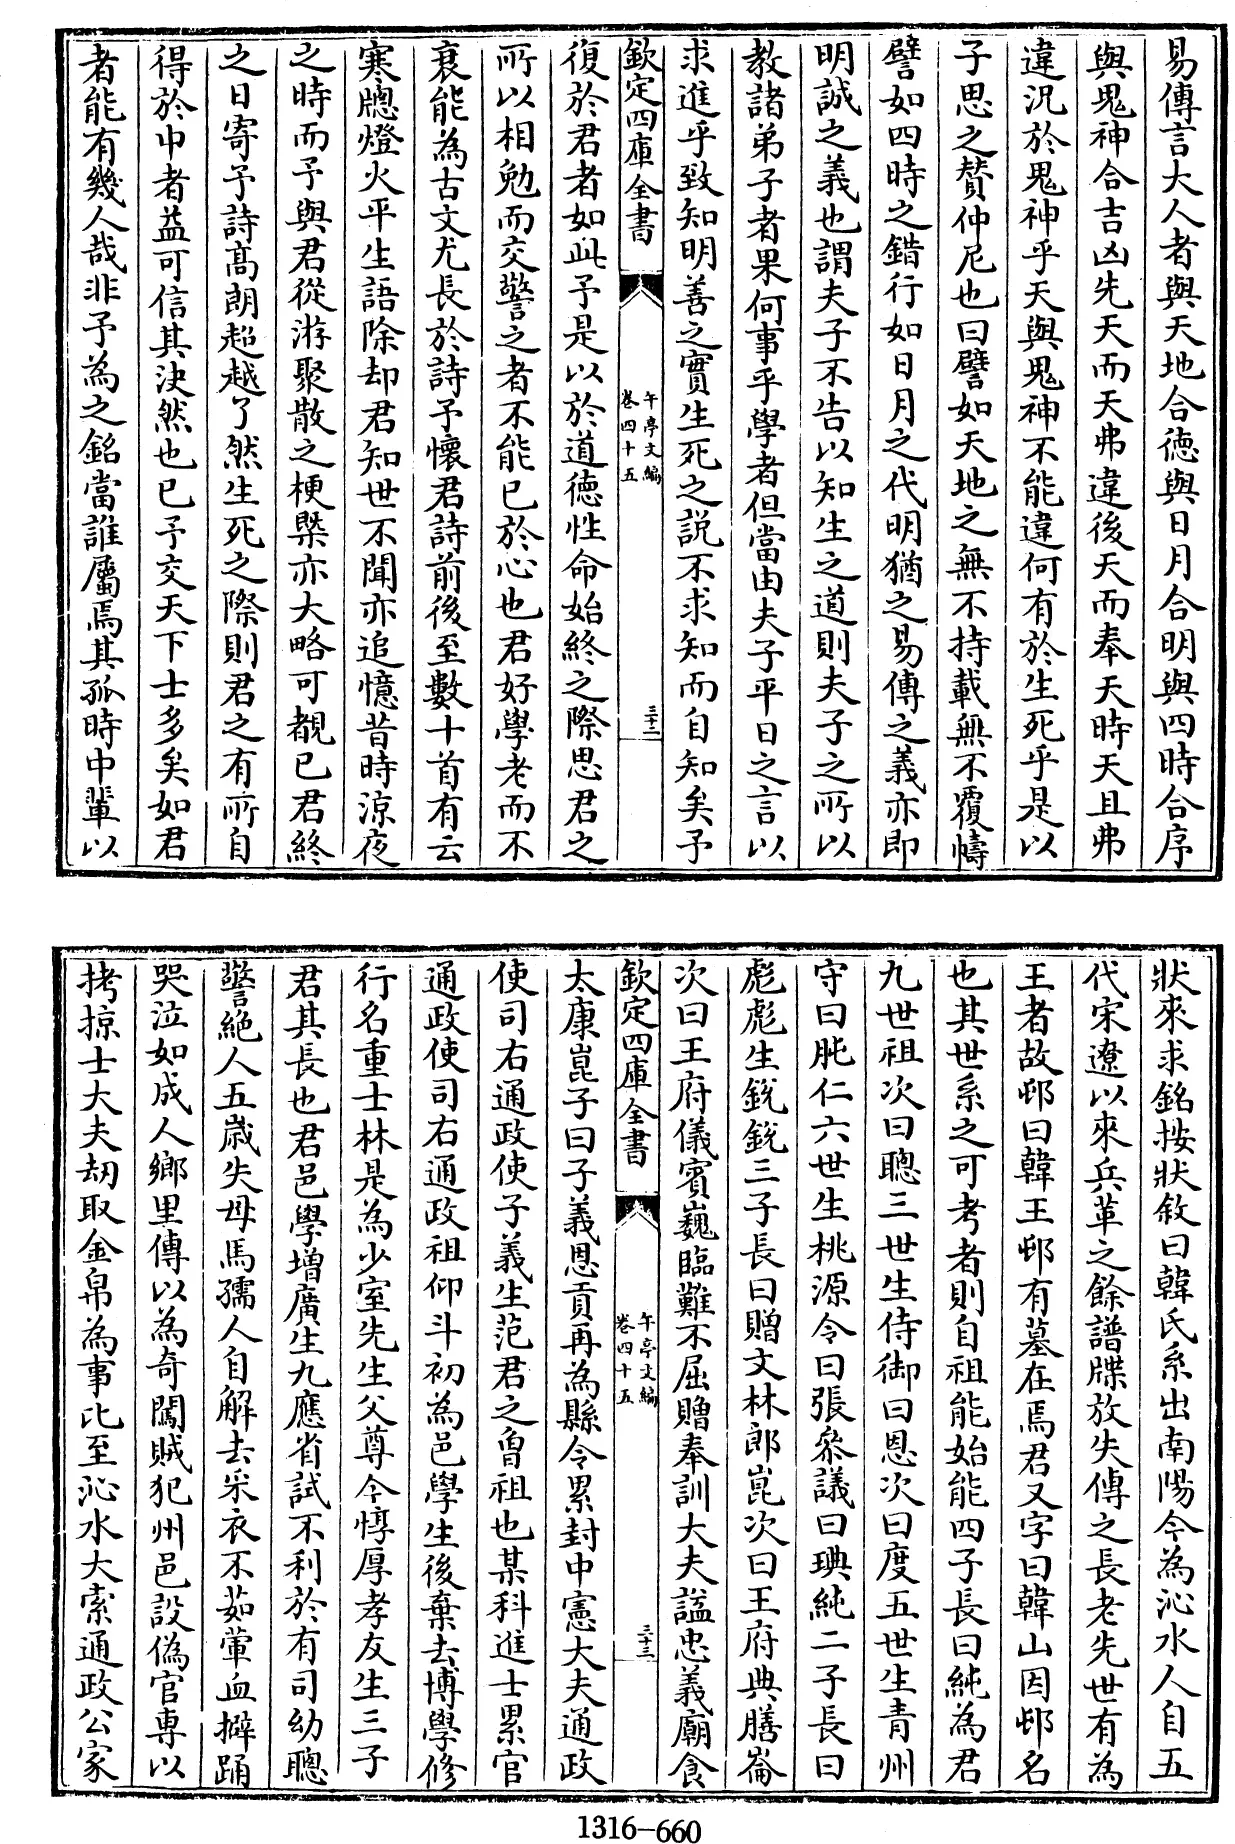 易傳言大人者與天地合德與日月合明與四時合序
與鬼神合吉凶先天而天弗違後天而奉天時天且弗
違況於鬼神乎天與鬼神不能違何有於生死乎是以
子思之贊仲尼也曰譬如天地之無不持載無不覆幬
譬如四時之錯行如日月之代明猶之易傳之義亦即
明誠之義也謂夫子不告以知生之道則夫子之所以
教諸弟子者果何事乎學者但當由夫子平日之言以
求進乎致知明善之實生死之說不求知而自知矣予
欽定四庫全書
午亭文編
卷四十五
三十二
復於君者如此予是以於道德性命始終之際思君之
所以相勉而交警之者不能已於心也君好學老而不
衰能為古文尤長於詩予懷君詩前後至數十首有云
寒牕燈火平生語除却君知世不聞亦追憶昔時涼夜
之時而予與君從游聚散之梗槩亦大略可覩已君終
之日寄予詩高朗超越了然生死之際則君之有所自
得於中者益可信其決然也已予交天下士多矣如君
者能有幾人哉非予為之銘當誰屬焉其孤時中輩以
狀來求銘按狀敘曰韓氏系出南陽今為沁水人自五
代宋遼以來兵革之餘譜牒放失傳之長老先世有為
王者故邨曰韓王邨有墓在焉君又字曰韓山因邨名
也其世系之可考者則自祖能始能四子長曰純為君
九世祖次曰聰三世生侍御曰恩次曰度五世生青州
守曰肫仁六世生桃源令曰張叅議曰琠純二子長曰
彪彪生銳銳三子長曰贈文林郎崑次曰王府典膳崙
次曰王府儀賓巍臨難不屈贈奉訓大夫謚忠義廟食
欽定四庫全書
午亭文編
卷四十五
三十三
太康崑子曰子義恩貢再為縣令累封中憲大夫通政
使司右通政使子義生范君之曾祖也某科進士累官
通政使司右通政祖仰斗初為邑學生後棄去博學修
行名重士林是為少室先生父尊今惇厚孝友生三子
君其長也君邑學增廣生九應省試不利於有司幼聰
警絶人五嵗失母馬孺人自解去采衣不茹葷血擗踊
哭泣如成人鄉里傳以為奇闖賊犯州邑設偽官專以
拷掠士大夫刼取金帛為事比至沁水大索通政公家
1316-660